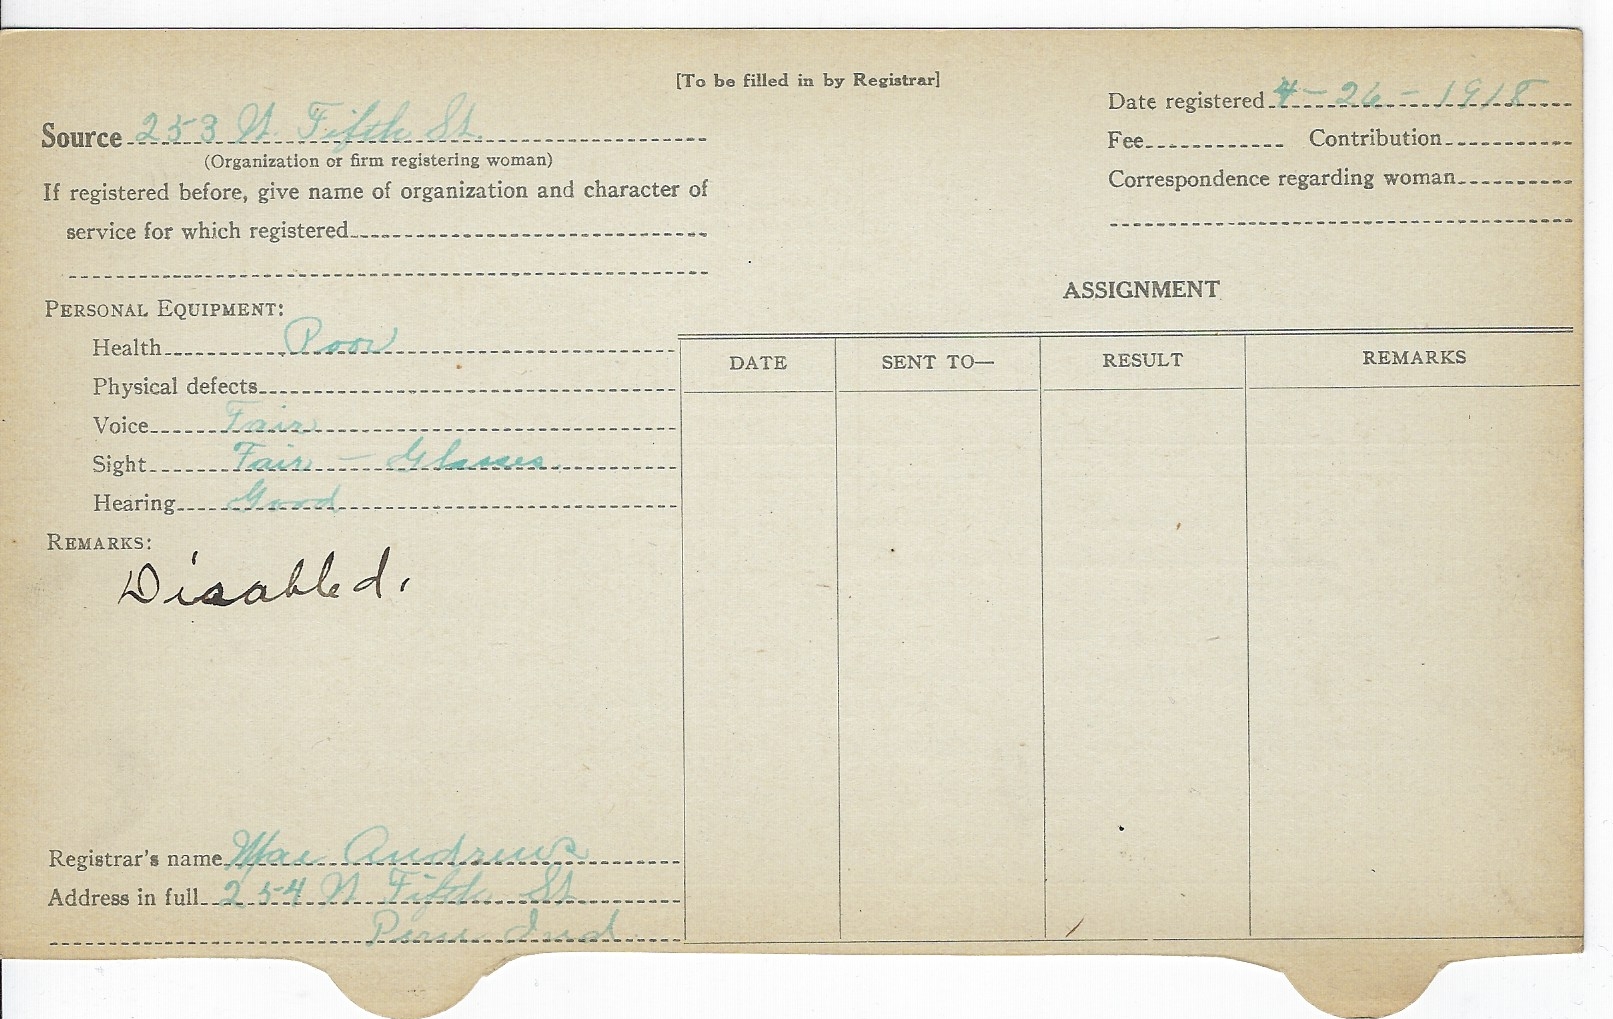 [To be filled in by Registrar]
Date registered 4-26-1918
Source 253 W. Fifth St.
(Organization or firm registering woman)
Fee Contribution
Correspondence regarding woman
If registered before, give name of organization and character of
service for which registered
ASSIGNMENT
PERSONAL EQUIPMENT:
Health Poor
Physical defects
Voice Fair
Sight Fair - Glasses
Hearing Good
DATE SENT TO— RESULT REMARKS
REMARKS:
Disabled.
Registrar's name Mae Andrews
Address in full 254 W Fifth St
Peru Ind.